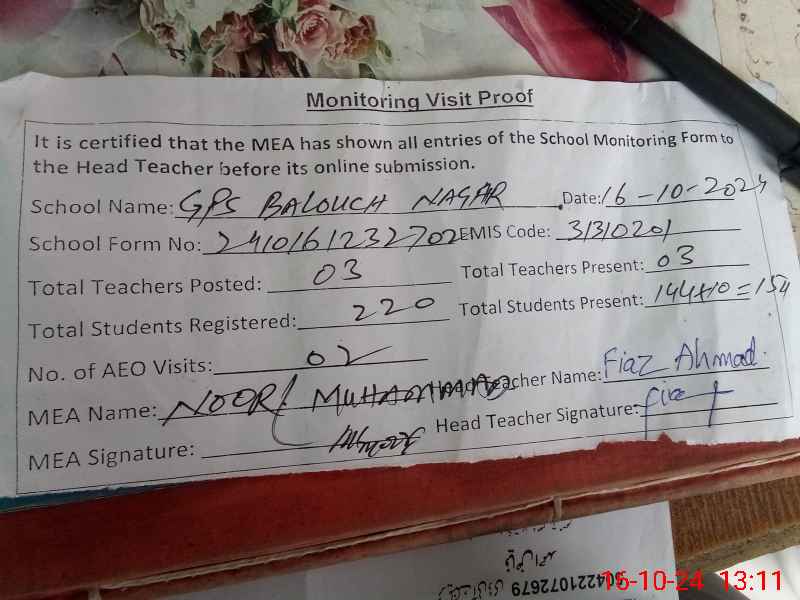 Monitoring Visit Proof
It is certified that the MEA has shown all entries of the School Monitoring Form to
the Head Teacher before its online submission.
School Name: GPS BALOUCH NAGAR Date: 16-10-2024
School Form No: 2410161232702 EMIS Code: 31310201
Total Teachers Posted: 03 Total Teachers Present: 03
Total Students Registered: 220 Total Students Present: 144+10=154
No. of AEO Visits: 02
MEA Name: NOOR MUHAMMAD Teacher Name: Fiaz Ahmad
MEA Signature: Head Teacher Signature:
16-10-24 13:11